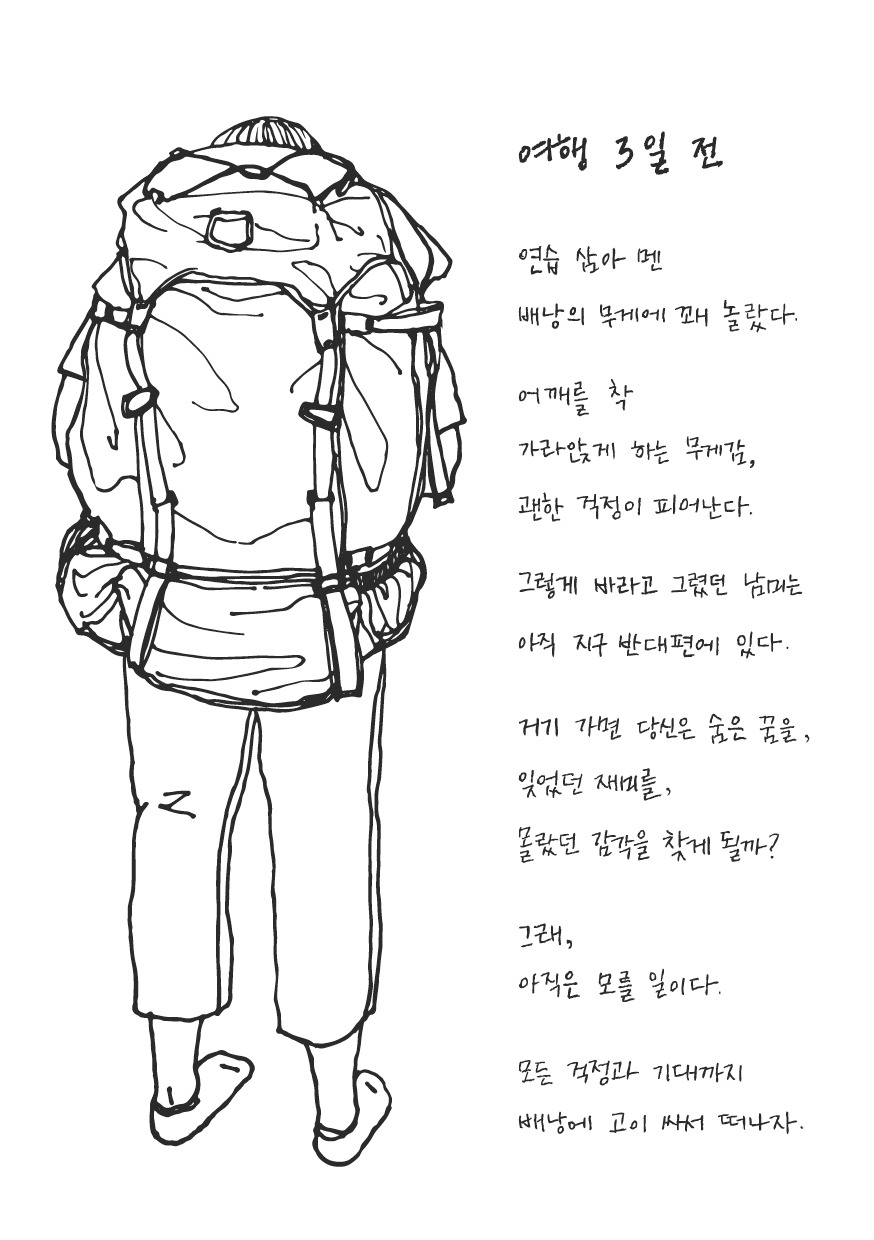 여행 3일 전
연습 삼아 멘
배낭의 무게에 꽤 놀랐다.
어깨를 착
가라앉게 하는 무게감,
괜한 걱정이 피어난다.
그렇게 바라고 그렸던 남미는
아직 지구 반대편에 있다.
거기 가면 당신은 숨은 꿈을,
잊었던 재미를,
몰랐던 감각을 찾게 될까?
그래,
아직은 모를 일이다.
모든 걱정과 기대까지
배낭에 고이 싸서 떠나자.